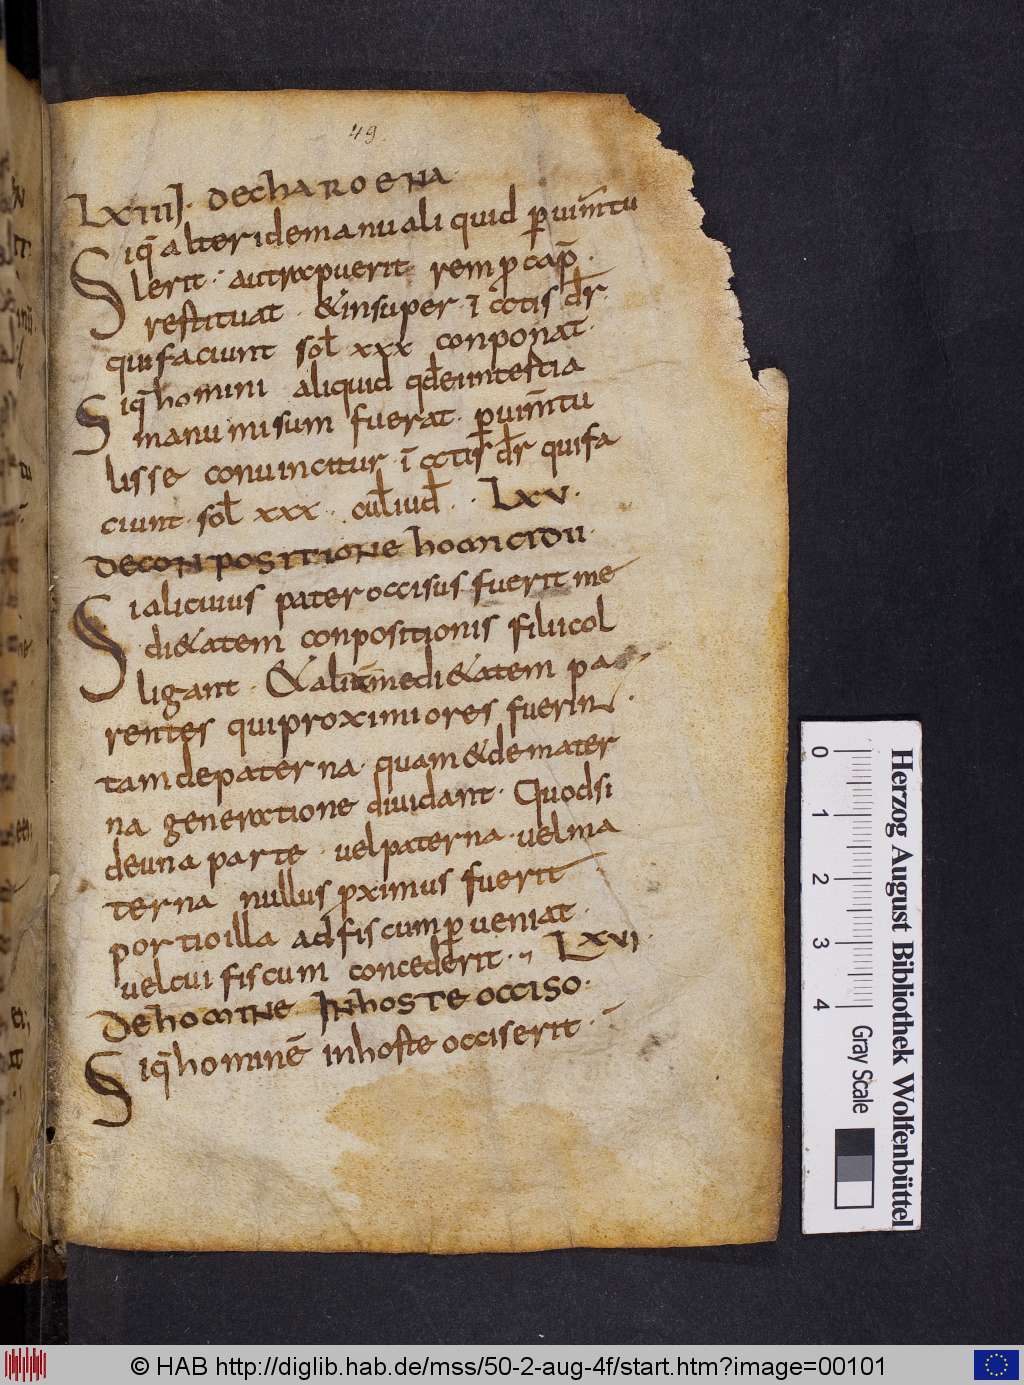 49
LXIIIJ. DECHAROENA
Siq̄ alteri demanu ali quid p̲ uim̄ tu
lerit. aut rapuerit rem p̲ cap̄.
restituat. & insuper. ī actis dr̄.
qui faciunt sol̄ xxx conponat.
Siq̄ homini aliquid qđe inntestia
manumisum fuerat. p̲ uim̄ tu
lisse conuincitur. ī actis dr̄ qui fa
ciunt. sol̄ xxx. cul̄ iud̄. LXV.
DECONPOSITIONE homicidii.
Si alicuius pater occisus fuerit me
di&atem conpositionis filii col
ligant. & aliām medi&atem pa
rentes qui proximiores fuerint.
tam de paterna. quam & de mater
na generatione diuidant. Quod si
de una parte. uel paterna. uel ma
terna nullus pximus fuerit
portio illa ad fiscum p̲ ueniat.
uel cui fiscum concederit. LXVJ.
DE homine IN hoste occiso.
Siq̄ hominē in hoste occiserit.
0 1 2 3 4 Gray Scale
Herzog August Bibliothek Wolfenbüttel
© HAB http://diglib.hab.de/mss/50-2-aug-4f/start.htm?image=00101